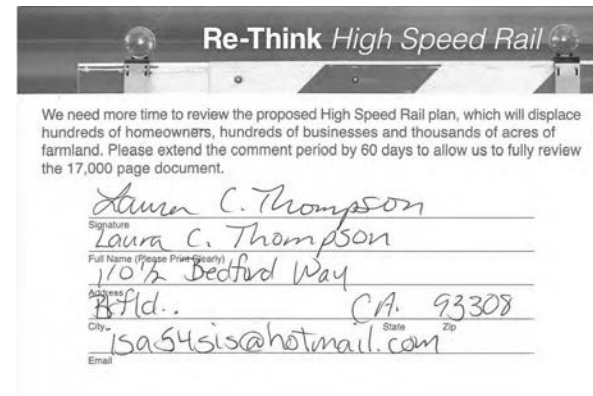 Re-Think High Speed Rail
We need more time to review the proposed High Speed Rail plan, which will displace
hundreds of homeowners, hundreds of businesses and thousands of acres of
farmland. Please extend the comment period by 60 days to allow us to fully review
the 17,000 page document.
Laura C. Thompson
Signature
Laura C. Thompson
Full Name (Please Print Clearly)
110 1/2 Bedford Way
Address
Bfld.. CA. 93308
City State Zip
lsa54sis@hotmail.com
Email